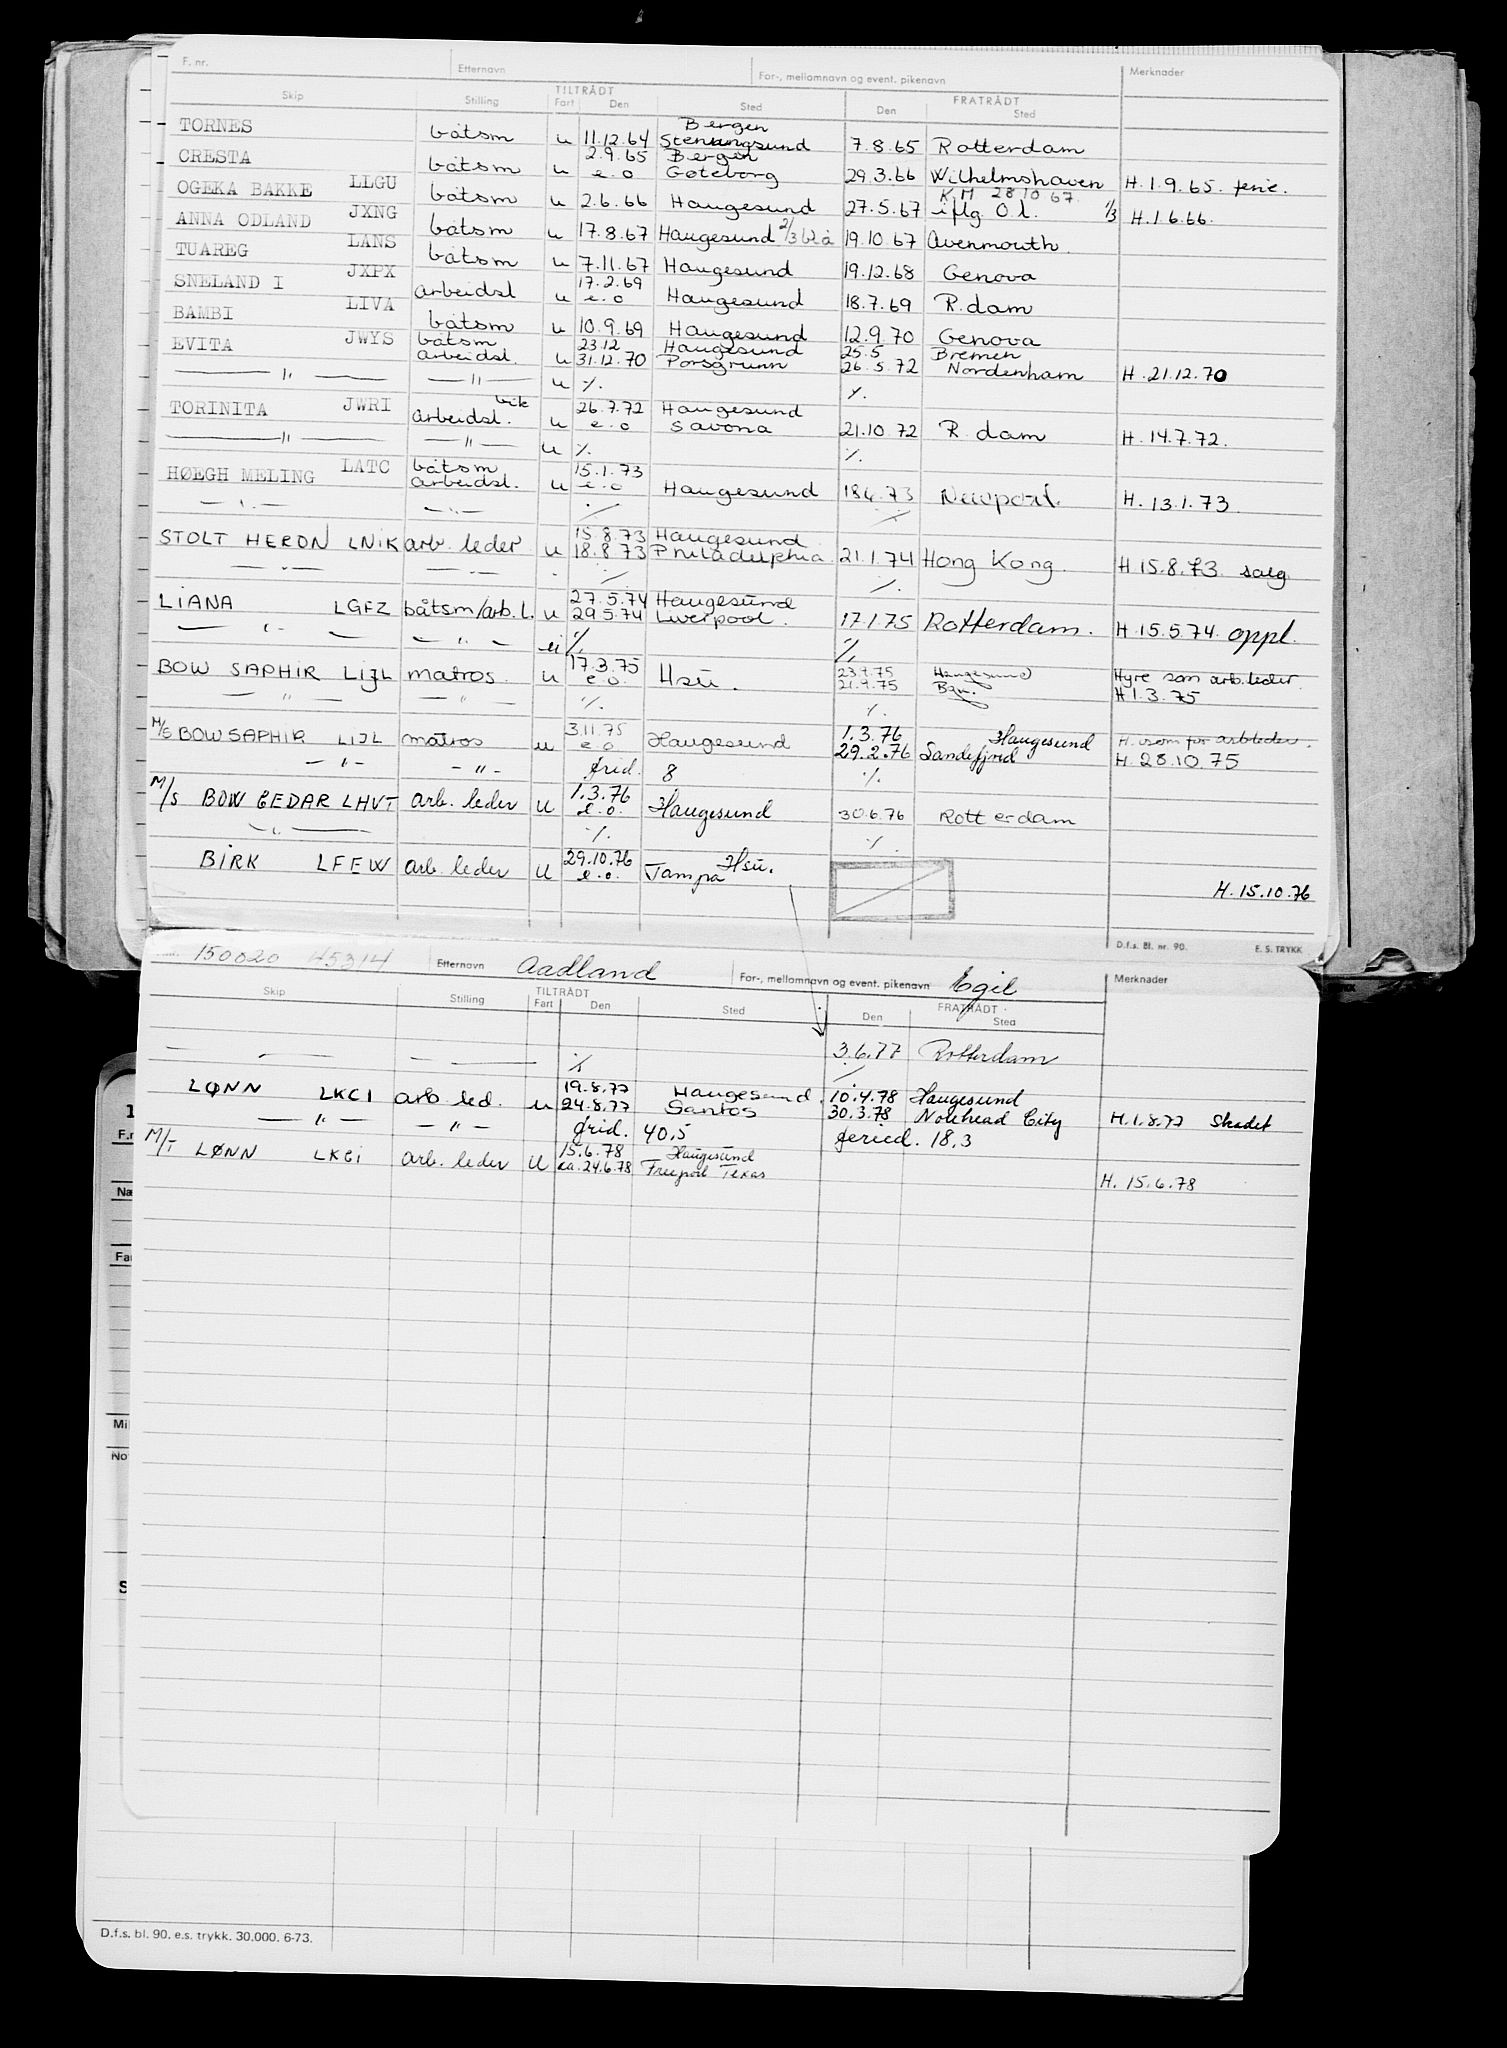 F. nr. Etternavn For-, mellomnavn og event. pikenavn Merknader
Skip Stilling TILTRÅDT Fart Den Sted FRATRÅDT Den Sted
TORNES båtsm u 11.12.64 Bergen Stenungsund 7.8.65 Rotterdam
CRESTA båtsm u 2.9.65 e.o Bergen Gøteborg 29.3.66 Wilhelmshaven H.1.9.65. ferie.
OGEKA BAKKE LLGU båtsm u 2.6.66 Haugesund 27.5.67 K.M 28 10 67. iflg O.l. 1/3 H.1.6.66.
ANNA ODLAND JXNG båtsm u 17.8.67 Haugesund 2/3 blå 19.10.67 Avenmouth.
TUAREG LANS båtsm u 7.11.67 Haugesund 19.12.68 Genova
SNELAND I JXPX arbeidsl u 17.2.69 e.o Haugesund 18.7.69 R.dam
BAMBI LIVA båtsm u 10.9.69 Haugesund 12.9.70 Genova
EVITA JWYS båtsm arbeidsl. u 23.12 31.12.70 Haugesund Porsgrunn 25.5 26.5.72 Bremen Nordenham H.21.12.70
— " — — " — u ./. ./.
TORINITA JWRI båt arbeidsl. u 26.7.72 e.o Haugesund Savona 21.10 72 R.dam H.14.7.72.
— " — — " — u ./. ./.
HØEGH MELING LATC båtsm arbeidsl. u 15.1.73 e.o Haugesund 18.4.73 Newport. H.13.1.73
— " — — " — ./. ./.
STOLT HERON LNIK arb. leder u 15.8.73 18.8 73 Haugesund Philadelphia 21.1.74 Hong Kong. H 15.8.73 salg
— " — — " — ./. ./.
LIANA LGFZ båtsm/arb.l. u 27.5.74 29.5.74 Haugesund Liverpool. 17.1.75 Rotterdam. H.15.5.74. oppl.
— " — — " — u ./. ./.
BOW SAPHIR LIJL matros u 17.3.75 e.o. Hsu. 23.9.75 21.9.75 Haugesund Bgn. Hyre som arb.leder. H 1.3.75
— " — — " — ./. ./.
M/S BOW SAPHIR LIJL matros u 3.11.75 e o Haugesund 1.3.76 29.2.76 Haugesund Sandefjord H. som for arbleder. H.28.10.75
— " — — " — frid. 8 ./.
M/S BOW CEDAR LHVT arb. leder u 1.3.76 e.o. Haugesund 30.6.76 Rotterdam
— " — ./. ./.
BIRK LFEW arb. leder u 29.10.76 e.o. Hsu. Tampa H.15.10.76
D.f.s. Bl. nr. 90. E. S. TRYKK
150020 45314 Etternavn Aadland For-, mellomnavn og event. pikenavn Egil Merknader
Skip Stilling TILTRÅDT Fart Den Sted FRATRÅDT Den Sted
— " — ./. 3.6.77 Rotterdam
LØNN LKCI arb led. u 19.8.77 24.8.77 Haugesund. Santos 10.4.78 30.3.78 Haugesund Morehead City H.1.8.77 Skadet
— " — — " — frid. 40,5 feried. 18,3
M/T LØNN LKCI arb. leder u 15.6.78 ca.24.6.78 Haugesund Freeport Texas H. 15.6.78
D.f.s. bl. 90. e.s. trykk. 30.000. 6-73.